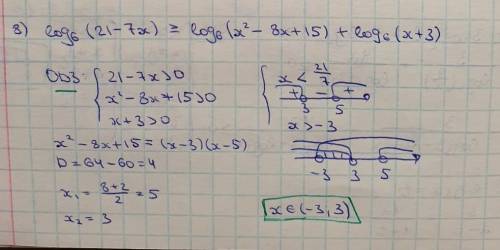 8) log₆(21-7x) ≥ log₆(x²-8x+15) + log₆(x+3)
ОДЗ: { 21-7x>0
x²-8x+15>0
x+3>0
{ x < 21/7
+ - +
3 5
x>-3
x²-8x+15=(x-3)(x-5)
D=64-60=4
-3 3 5
x₁ = (8+2)/2 = 5
x₂ = 3
x∈(-3,3)